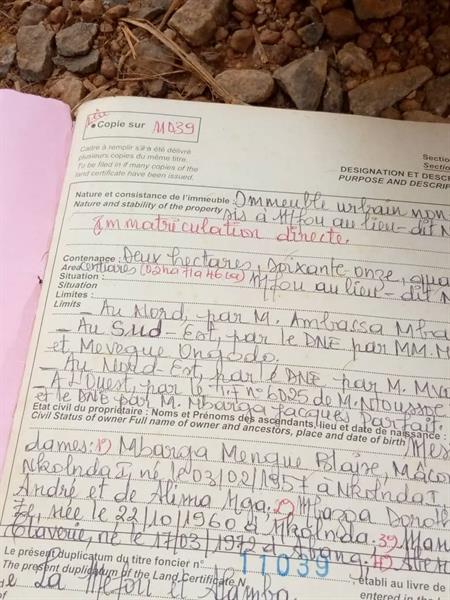 1ère
Copie sur 11039
Cadre à remplir s'il a été délivré
plusieurs copies du même titre.
To be filed in if many copies of the
land certificate have been issued.
Section
Section
DESIGNATION ET DESC
PURPOSE AND DESCRIP
Nature et consistance de l'immeuble : Immeuble urbain non
Nature and stability of the property sis à Mfou au lieu-dit N
Immatriculation directe.
Contenance : Deux hectares, soixante-onze, qua
Area centiares (02ha 71a 46ca)
Situation : Mfou au lieu-dit N
Situation
Limites :
Limits
- Au Nord, par M. Ambassa Mba
- Au Sud-Est, par le DNE par MM. M
et Mevegue Ongodo.
- Au Nord-Est, par le DNE, par M. Mv
- A l'Ouest, par le T.F n° 6025 de M. Ntousse
et le DNE par M. Mbarga Jacques Parfait.
Etat civil du propriétaire : Noms et Prénoms des ascendants, lieu et date de naissance : Mes
Civil Status of owner Full name of owner and ancestors, place and date of birth
dames: 1) Mbarga Mengue Blaise, Mâcon
Nkolnda I, né le 03/02/1957 à Nkolnda I
André et de Alima Mga. 2) Mbazoa Doroth
née le 22/10/1960 à Nkolnda. 3) Man
Claverie, né le 17/03/1972 à
Le présent duplicatum du titre foncier n° 11039, établi au livre de
The present duplicatum of the Land Certificate N entered in the
de La Mefou et Afamba.